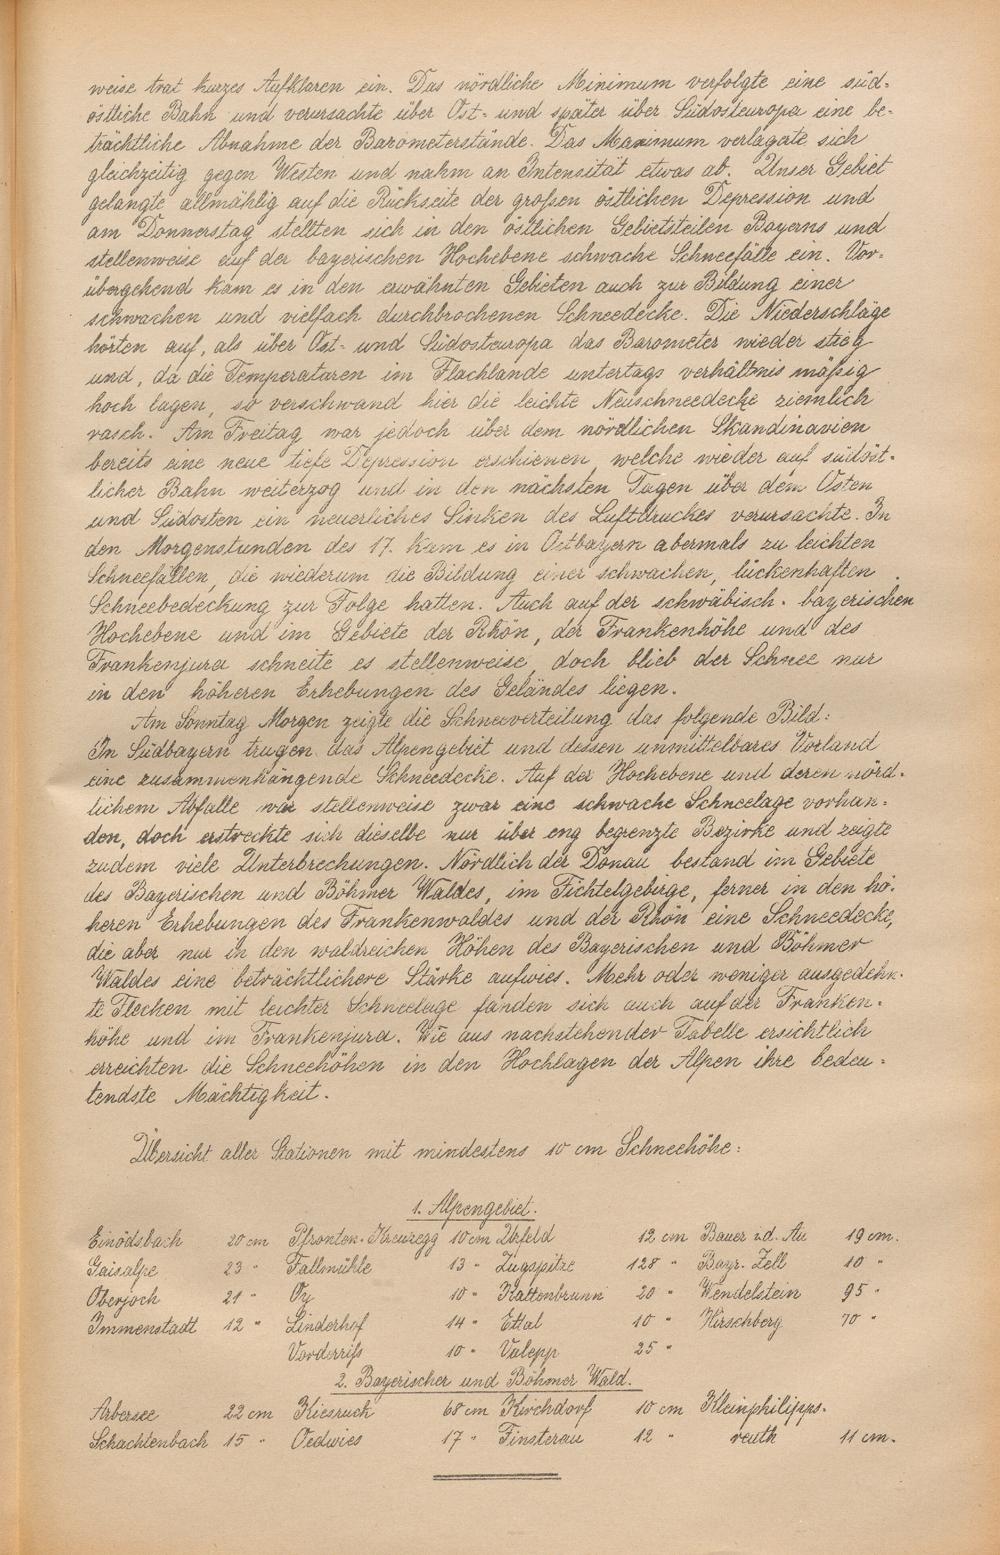 weise trat kurzes Aufklaren ein. Das nördliche Minimum verfolgte eine süd-
östliche Bahn und verursachte über Ost- und später über Südosteuropa eine be-
trächtliche Abnahme der Barometerstände. Das Maximum verlagerte sich
gleichzeitig gegen Westen und nahm an Intensität etwas ab. Unser Gebiet
gelangte allmählig auf die Rückseite der großen östlichen Depression und
am Donnerstag stellten sich in den östlichen Gebietsteilen Bayerns und
stellenweise auf der bayerischen Hochebene schwache Schneefälle ein. Vor-
übergehend kam es in den erwähnten Gebieten auch zur Bildung einer
schwachen und vielfach durchbrochenen Schneedecke. Die Niederschläge
hörten auf, als über Ost- und Südosteuropa das Barometer wieder stieg
und, da die Temperaturen im Flachlande untertags verhältnismäßig
hoch lagen, so verschwand hier die leichte Neuschneedecke ziemlich
rasch. Am Freitag war jedoch über dem nördlichen Skandinavien
bereits eine neue tiefe Depression erschienen, welche wieder auf südöst-
licher Bahn weiterzog und in den nächsten Tagen über dem Osten
und Südosten ein neuerliches Sinken des Luftdruckes verursachte. In
den Morgenstunden des 17. kam es in Ostbayern abermals zu leichten
Schneefällen, die wiederum die Bildung einer schwachen, lückenhaften
Schneebedeckung zur Folge hatten. Auch auf der schwäbisch-bayerischen
Hochebene und im Gebiete der Rhön, der Frankenhöhe und des
Frankenjura schneite es stellenweise, doch blieb der Schnee nur
in den höheren Erhebungen des Geländes liegen.
Am Sonntag Morgen zeigte die Schneeverteilung das folgende Bild:
In Südbayern trugen das Alpengebiet und dessen unmittelbares Vorland
eine zusammenhängende Schneedecke. Auf der Hochebene und deren nörd-
lichem Abfalle war stellenweise zwar eine schwache Schneelage vorhan-
den, doch erstreckte sich dieselbe nur über eng begrenzte Bezirke und zeigte
zudem viele Unterbrechungen. Nördlich der Donau bestand im Gebiete
des Bayerischen und Böhmer Waldes, im Fichtelgebirge, ferner in den hö-
heren Erhebungen des Frankenwaldes und der Rhön eine Schneedecke,
die aber nur in den waldreichen Höhen des Bayerischen und Böhmer
Waldes eine beträchtlichere Stärke aufwies. Mehr oder weniger ausgedehn-
te Flecken mit leichter Schneelage fanden sich auch auf der Franken-
höhe und im Frankenjura. Wie aus nachstehender Tabelle ersichtlich
erreichten die Schneehöhen in den Hochlagen der Alpen ihre bedeu-
tendste Mächtigkeit.
Übersicht aller Stationen mit mindestens 10 cm Schneehöhe:
1. Alpengebiet.
Einödsbach 20 cm Pfronten-Kreuzegg 10 cm Urfeld 12 cm Bauer i.d. Au 19 cm.
Gaisalpe 23 " Fallmühle 13 " Zugspitze 128 " Bayr. Zell 10 "
Oberjoch 21 " Oy 10 " Kaltenbrunn 20 " Wendelstein 95 "
Immenstadt 12 " Linderhof 14 " Ettal 10 " Hirschberg 70 "
Vorderriß 10 " Valepp 25 "
2. Bayerischer und Böhmer Wald.
Arbersee 22 cm Kiesruck 68 cm Kirchdorf 10 cm Kleinphilipps-
Schachtenbach 15 " Oedwies 17 " Finsterau 12 " reuth 11 cm.